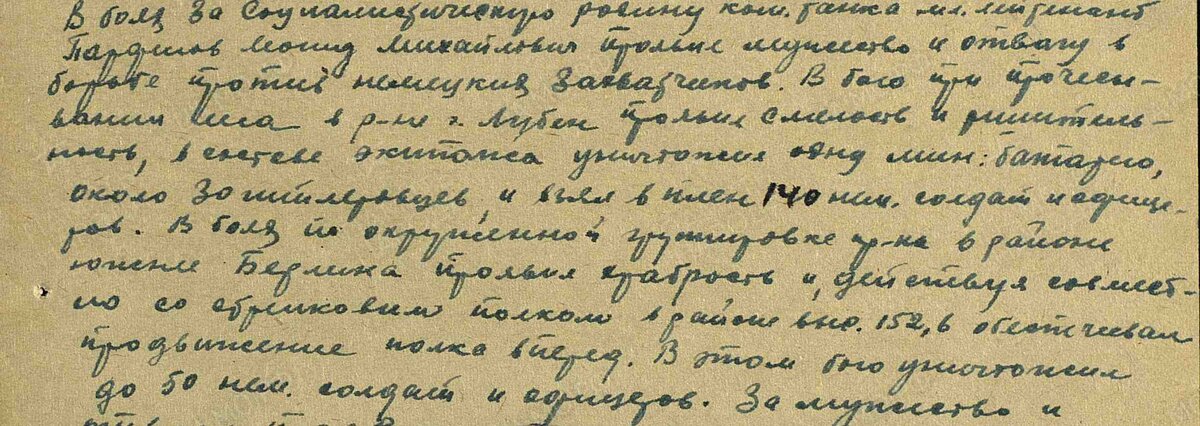 В боях за социалистическую родину ком. танка мл. лейтенант
Леонид Михайлович проявил мужество и отвагу в
борьбе против немецких захватчиков. В бою при прочесы-
вании леса в р-не г. Лубен проявил смелость и решитель-
ность, в составе экипажа уничтожил одну мин. батарею,
около 30 гитлеровцев и взял в плен 140 нем. солдат и офице-
ров. В боях по окруженной группировке пр-ка в районе
южнее Берлина проявил храбрость и, действуя совмест-
но со стрелковым полком в районе выс. 152,6 обеспечивал
продвижение полка вперед. В этом бою уничтожил
до 50 нем. солдат и офицеров. За мужество и